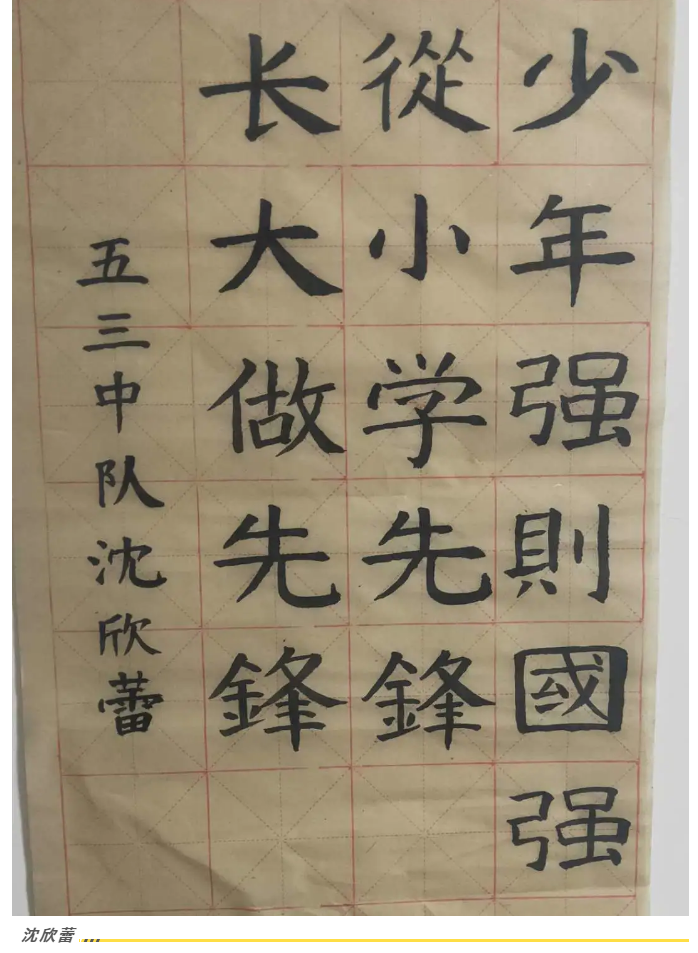 少年强則國强
從小学先鋒
长大做先鋒
五三中队沈欣蕾
沈欣蕾